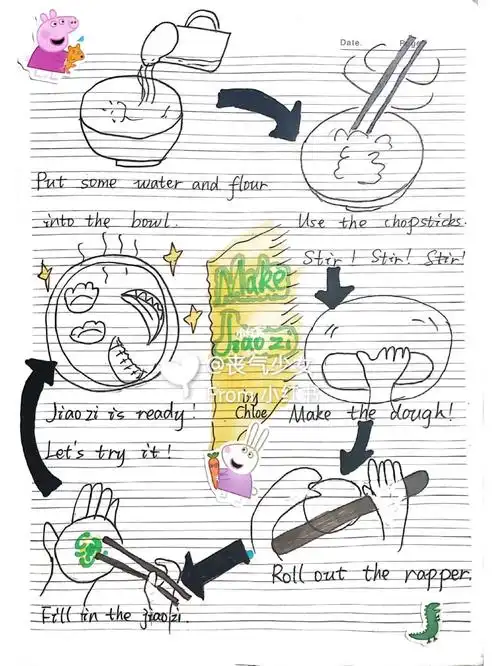 Date.
Page
Put some water and flour
into the bowl.
Use the chopsticks.
Stir! Stir! Stir!
Make
Jiao zi
by
Chloe
Make the dough!
Roll out the rapper.
Fill in the jiaozi.
Jiao zi is ready!
Let's try it!
@丧气少女
From 小红书